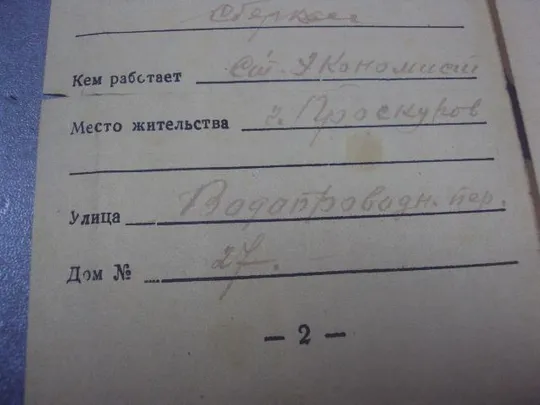 Сберкасса
Кем работает Ст. Экономист
Место жительства г. Проскуров
Улица Водопроводн. пер.
Дом № 27.
— 2 —